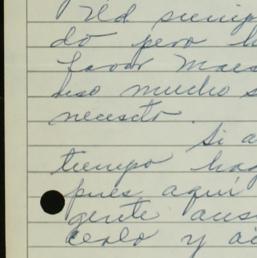 Ud siemp
do pero
favor Maes
eso mucho s
necesito.
Si a
tiempo hag
pues aquí
gente aus
celo y ai